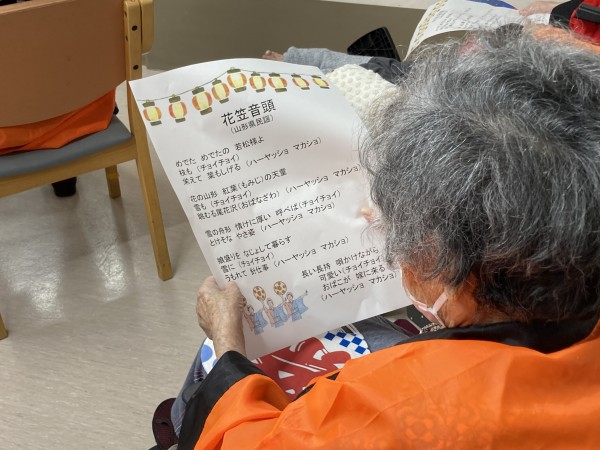 花笠音頭
(山形県民謡)
めでた めでたの 若松様よ
枝も (チョイチョイ)
栄えて 葉もしげる (ハーヤッショ マカショ)
花の山形 紅葉(もみじ)の天童
雪も (チョイチョイ)
眺むる尾花沢(おばなざわ) (ハーヤッショ マカショ)
雪の舟形 情けに厚い 呼べば(チョイチョイ)
とけそな やさ姿 (ハーヤッショ マカショ)
娘盛りを なじょして暮らす
雪に (チョイチョイ)
うもれて 針仕事 (ハーヤッショ マカショ)
長い長持 唄かけながら
可愛い(チョイチョイ)
おばこが 嫁に来る
(ハーヤッショ マカショ)